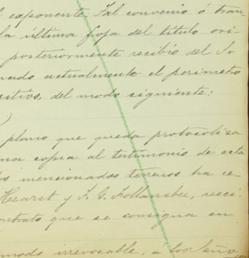 el exponente. Tal convenio ó tran
la última foja del título ori
posteriormente recibió del Se
nado actualmente el perímetro
sitios, del modo siguiente:
)
plano que queda protocoliza
na copia al testimonio de esta
los mencionados terrenos ha ce
Hearst y F. G. Follansbee, veci
ontrato que se consigna en
modo irrevocable, á los Seño